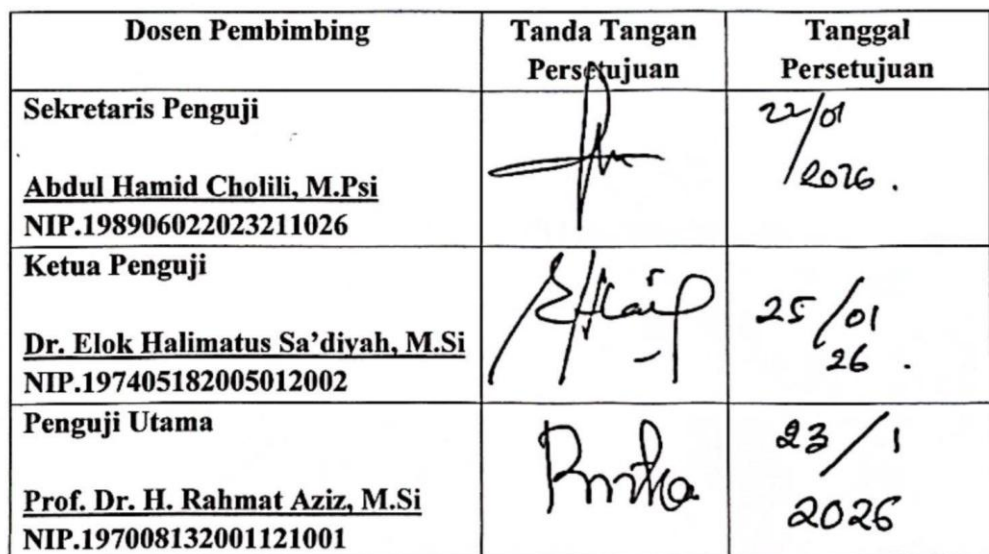 Dosen Pembimbing
Tanda Tangan
Persetujuan
Tanggal
Persetujuan
Sekretaris Penguji
Abdul Hamid Cholili, M.Psi
NIP.198906022023211026
22/01
2026.
Ketua Penguji
Dr. Elok Halimatus Sa'diyah, M.Si
NIP.197405182005012002
25/01
26.
Penguji Utama
Prof. Dr. H. Rahmat Aziz, M.Si
NIP.197008132001121001
23/1
2026